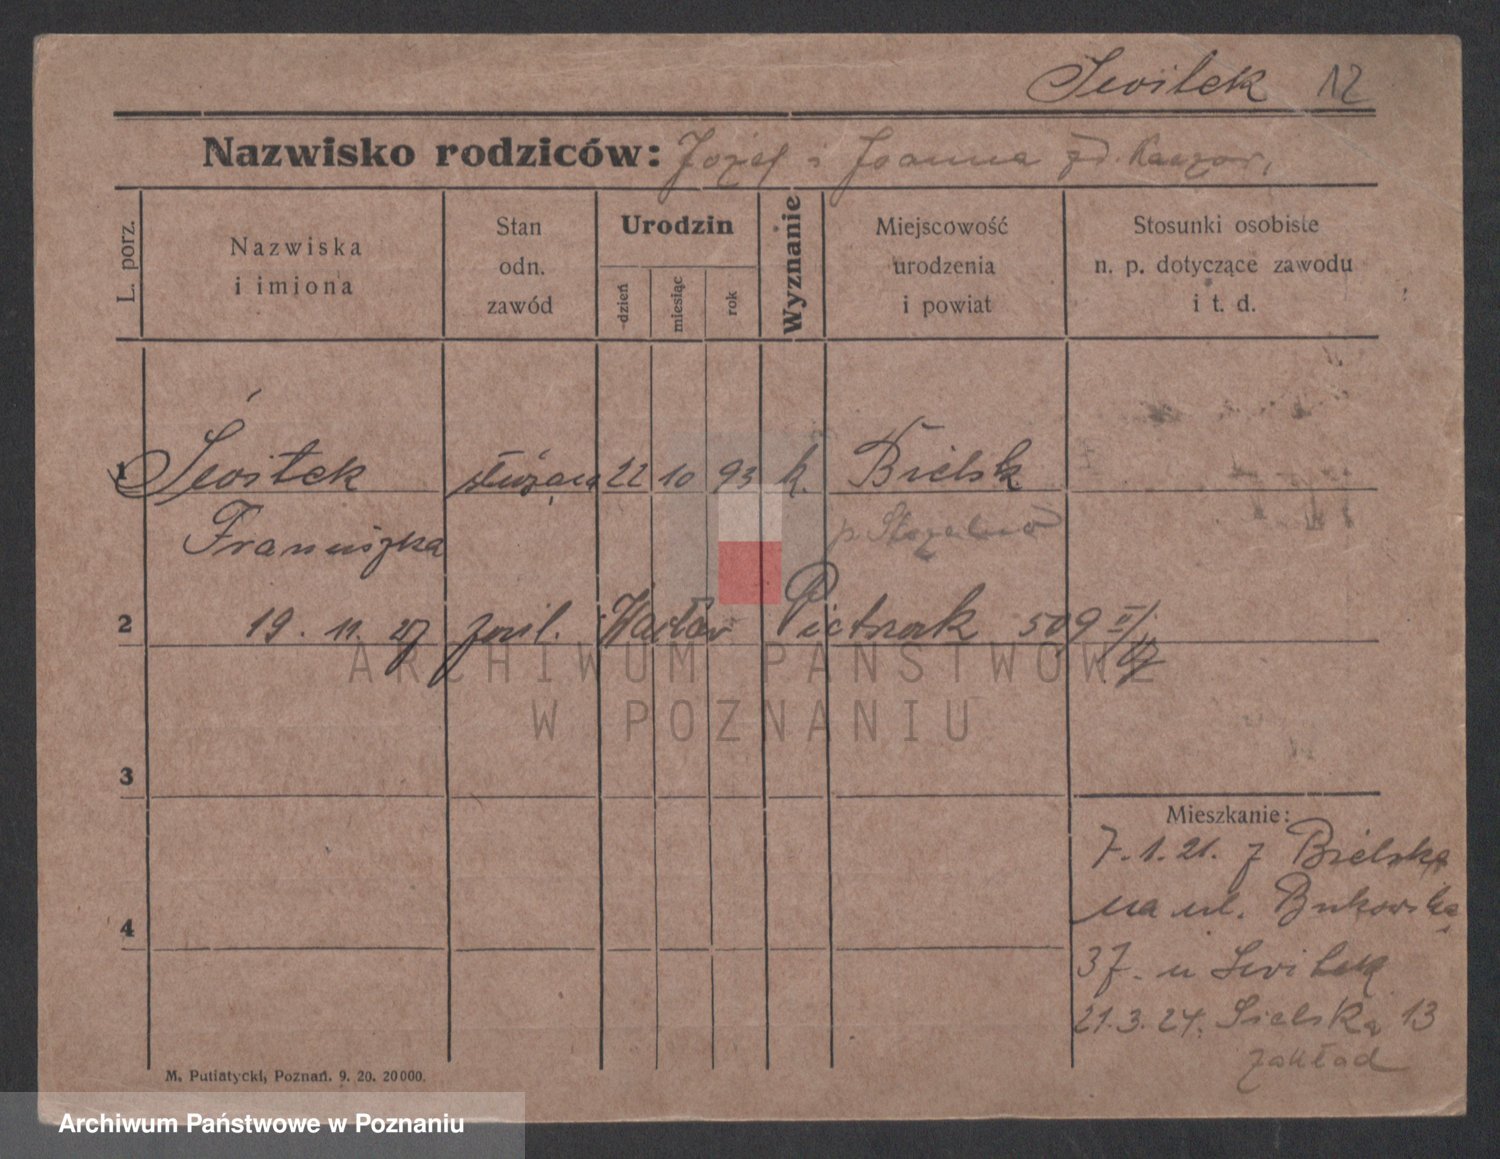 Switek 12
Nazwisko rodziców: Józef i Joanna zd. Kaczor.
L. porz.
Nazwiska
i imiona
Stan
odn.
zawód
Urodzin
dzień
miesiąc
rok
Wyznanie
Miejscowość
urodzenia
i powiat
Stosunki osobiste
n. p. dotyczące zawodu
i t. d.
1 Świtek służąca 22 10 93 k. Bielsk
Franciszka p. Strzelno
2 19. 11. 27 Wacław Pietrzak 509 II/27
3
4
Mieszkanie:
7. 1. 21. z Bielska
na ul. Bukowska
37. u Switka
21. 3. 24. Sielska 13
zakład
M. Putiatycki, Poznań. 9. 20. 20000.
ARCHIWUM PAŃSTWOWE
W POZNANIU
Archiwum Państwowe w Poznaniu